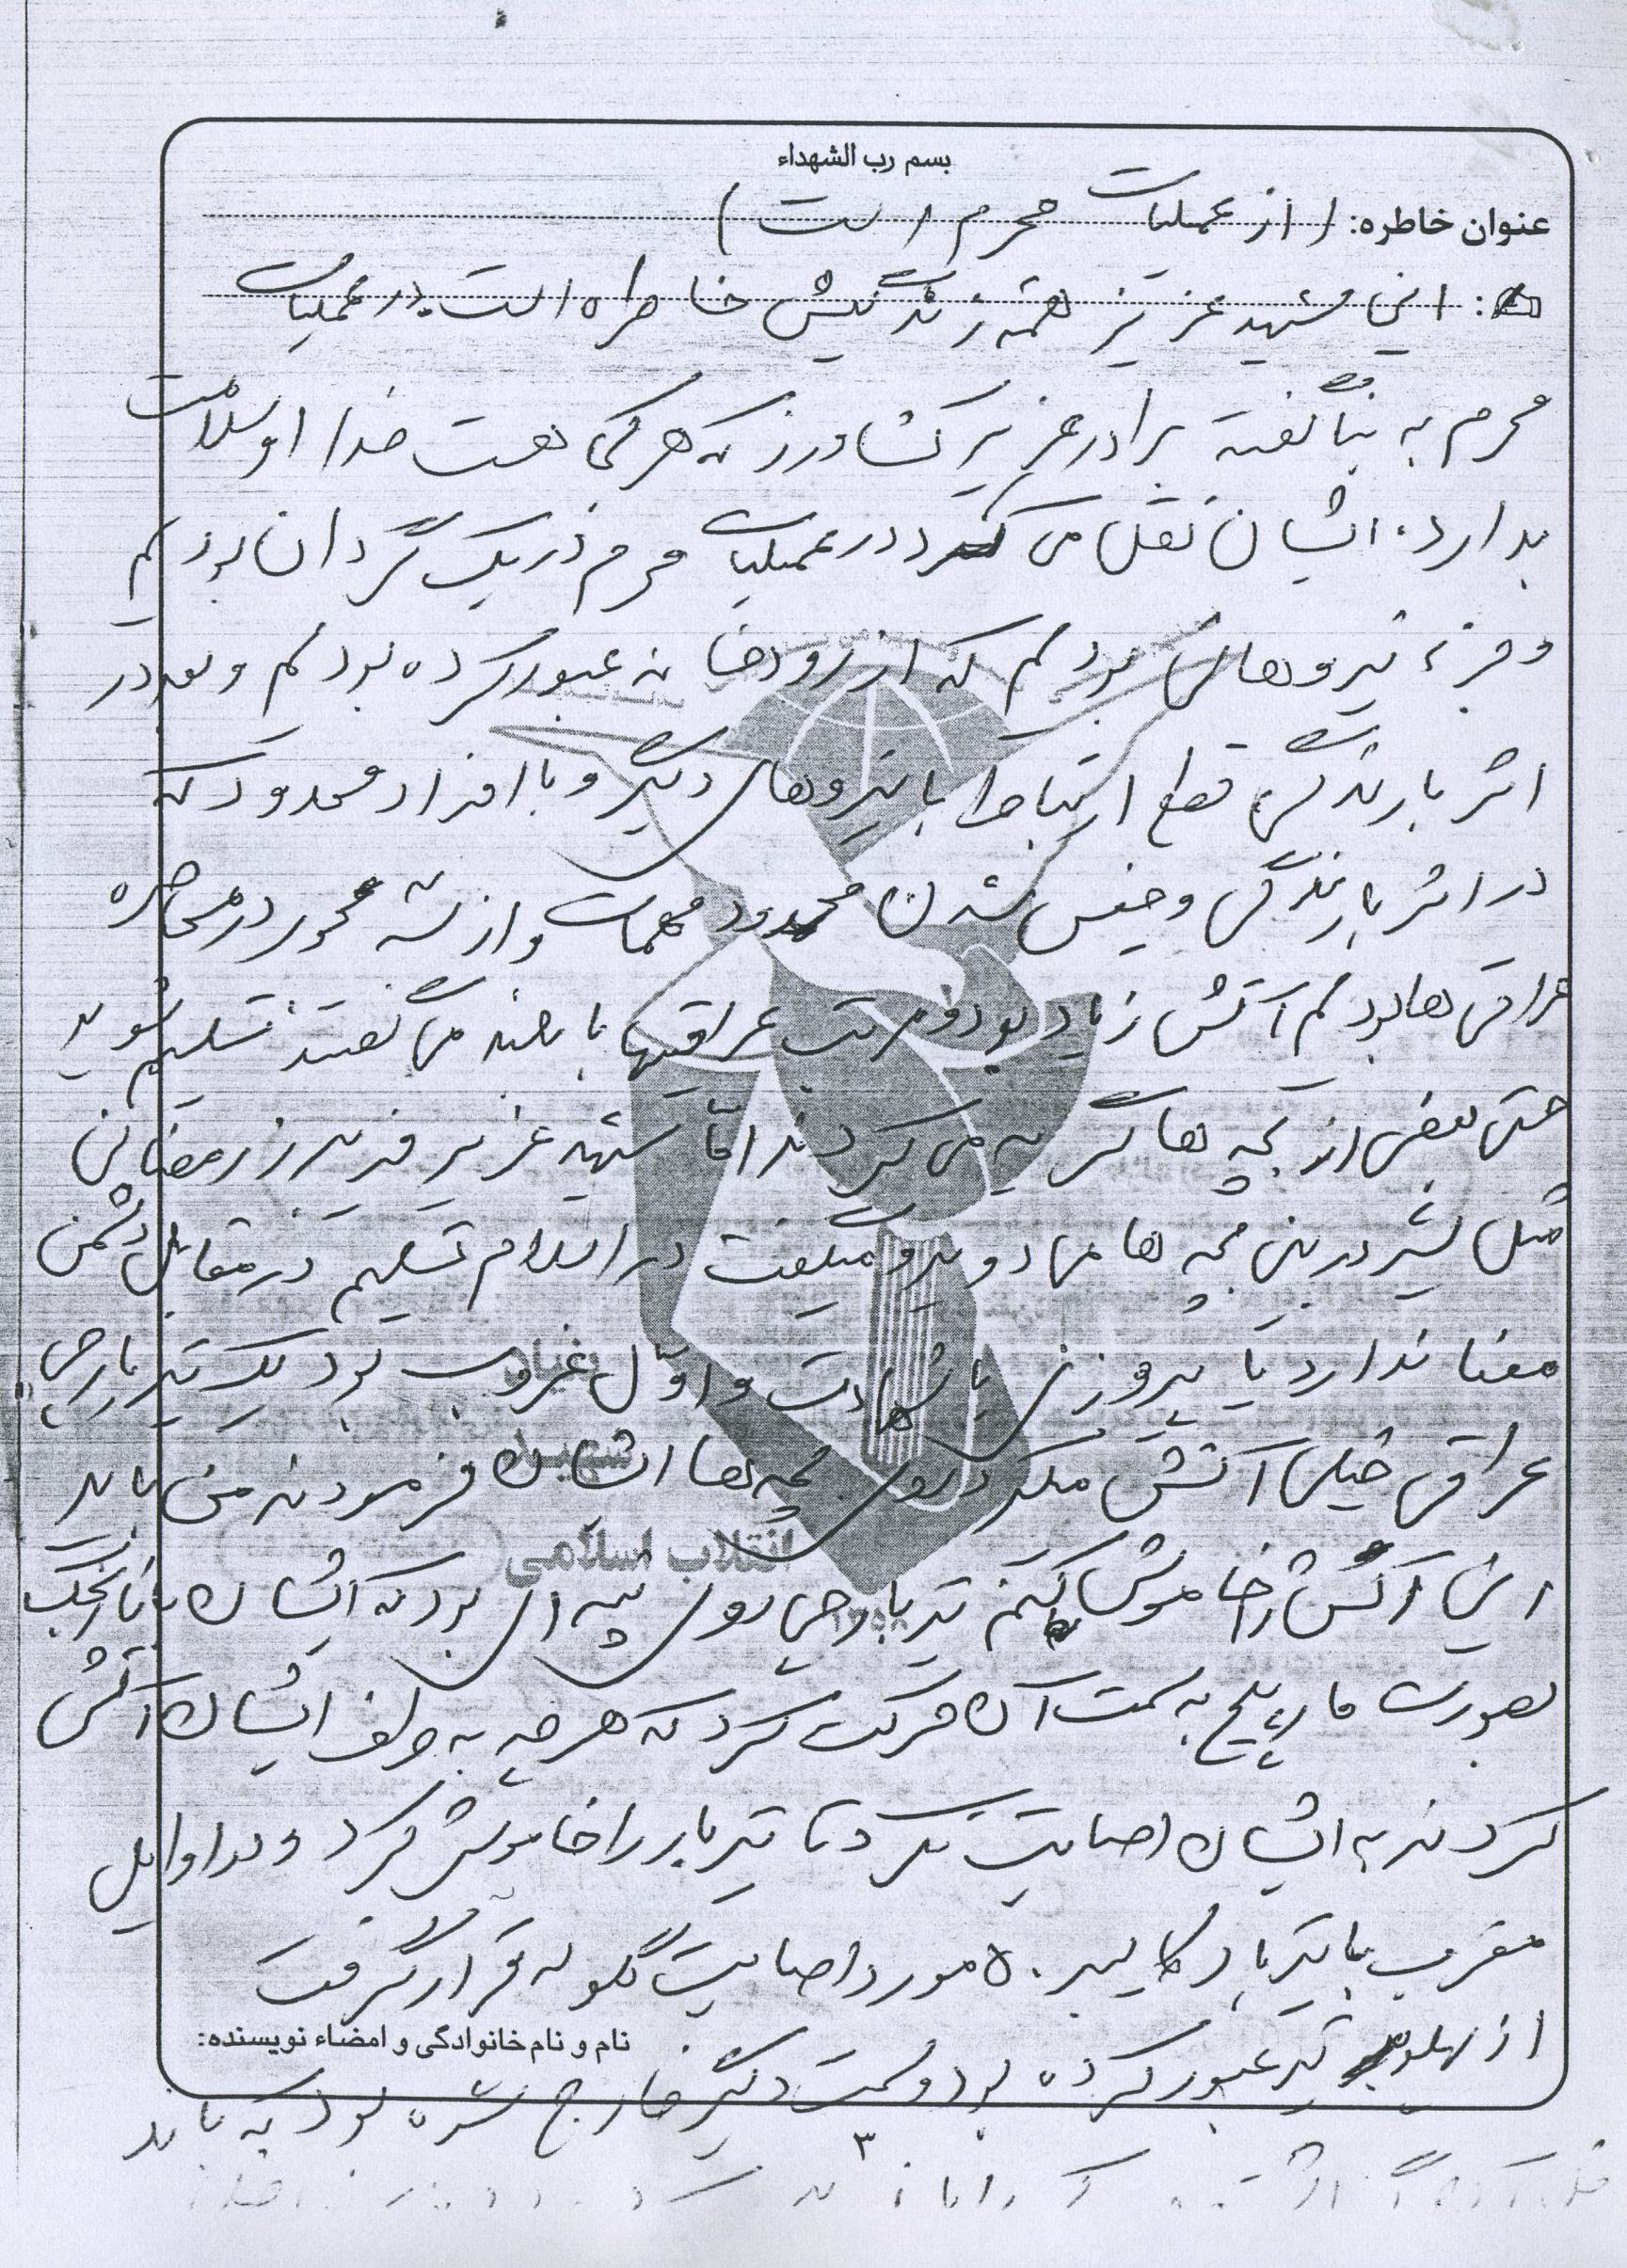 بسم رب الشهداء
عنوان خاطره: (از عملیات محرم است)
این شهید عزیز همه زندگیش خاطره است. در عملیات
محرم به بنا گفته برادر عزیز کشاورز که هر کجا هست خدا او سلامت
بدارد. ایشان نقل می کرد در عملیات محرم در یک گردان بودیم
و جزء نیروهای بودیم که از رودخانه عبور کرده بودیم و بعد در
اثر بارندگی قطع ارتباط با نیروهای دیگر و با افراد محدود که
در اثر بارندگی و خیس شدن محدود مهمات و از سه محور در محاصره
عراقی ها بودیم آتش زیاد بود و مرتب عراقیها با بلند می گفتند تسلیم شوید
حتی بعضی از بچه ها گریه می کردند امّا شهید عزیز فریبرز رمضانی
مثل شیر در بین بچه ها می دوید و میگفت در اسلام تسلیم در مقابل دشمن
معنا ندارد یا پیروزی یا شهادت و اوّل غروب بود یک تیربارچی
عراقی خیلی آتش میکرد روی بچه ها ایشان فرمودند من باید
این آتش را خاموش کنم تیربارچی روی تپه ای بود که ایشان با نارنجک
بصورت مارپیچ به سمت آن حرکت کرد که هر چه به طرف ایشان آتش
کردند به ایشان اصابت نکرد تا تیربار را خاموش کرد و بعد اوایل
مغرب با تیربار کالیبر ۵۰ مورد اصابت گلوله قرار گرفت
از پهلوی تیر عبور کرده بود و سمت دیگر خارج شده بود که باید
نام و نام خانوادگی و امضاء نویسنده:
۳
بنیاد
شهید
انقلاب اسلامی